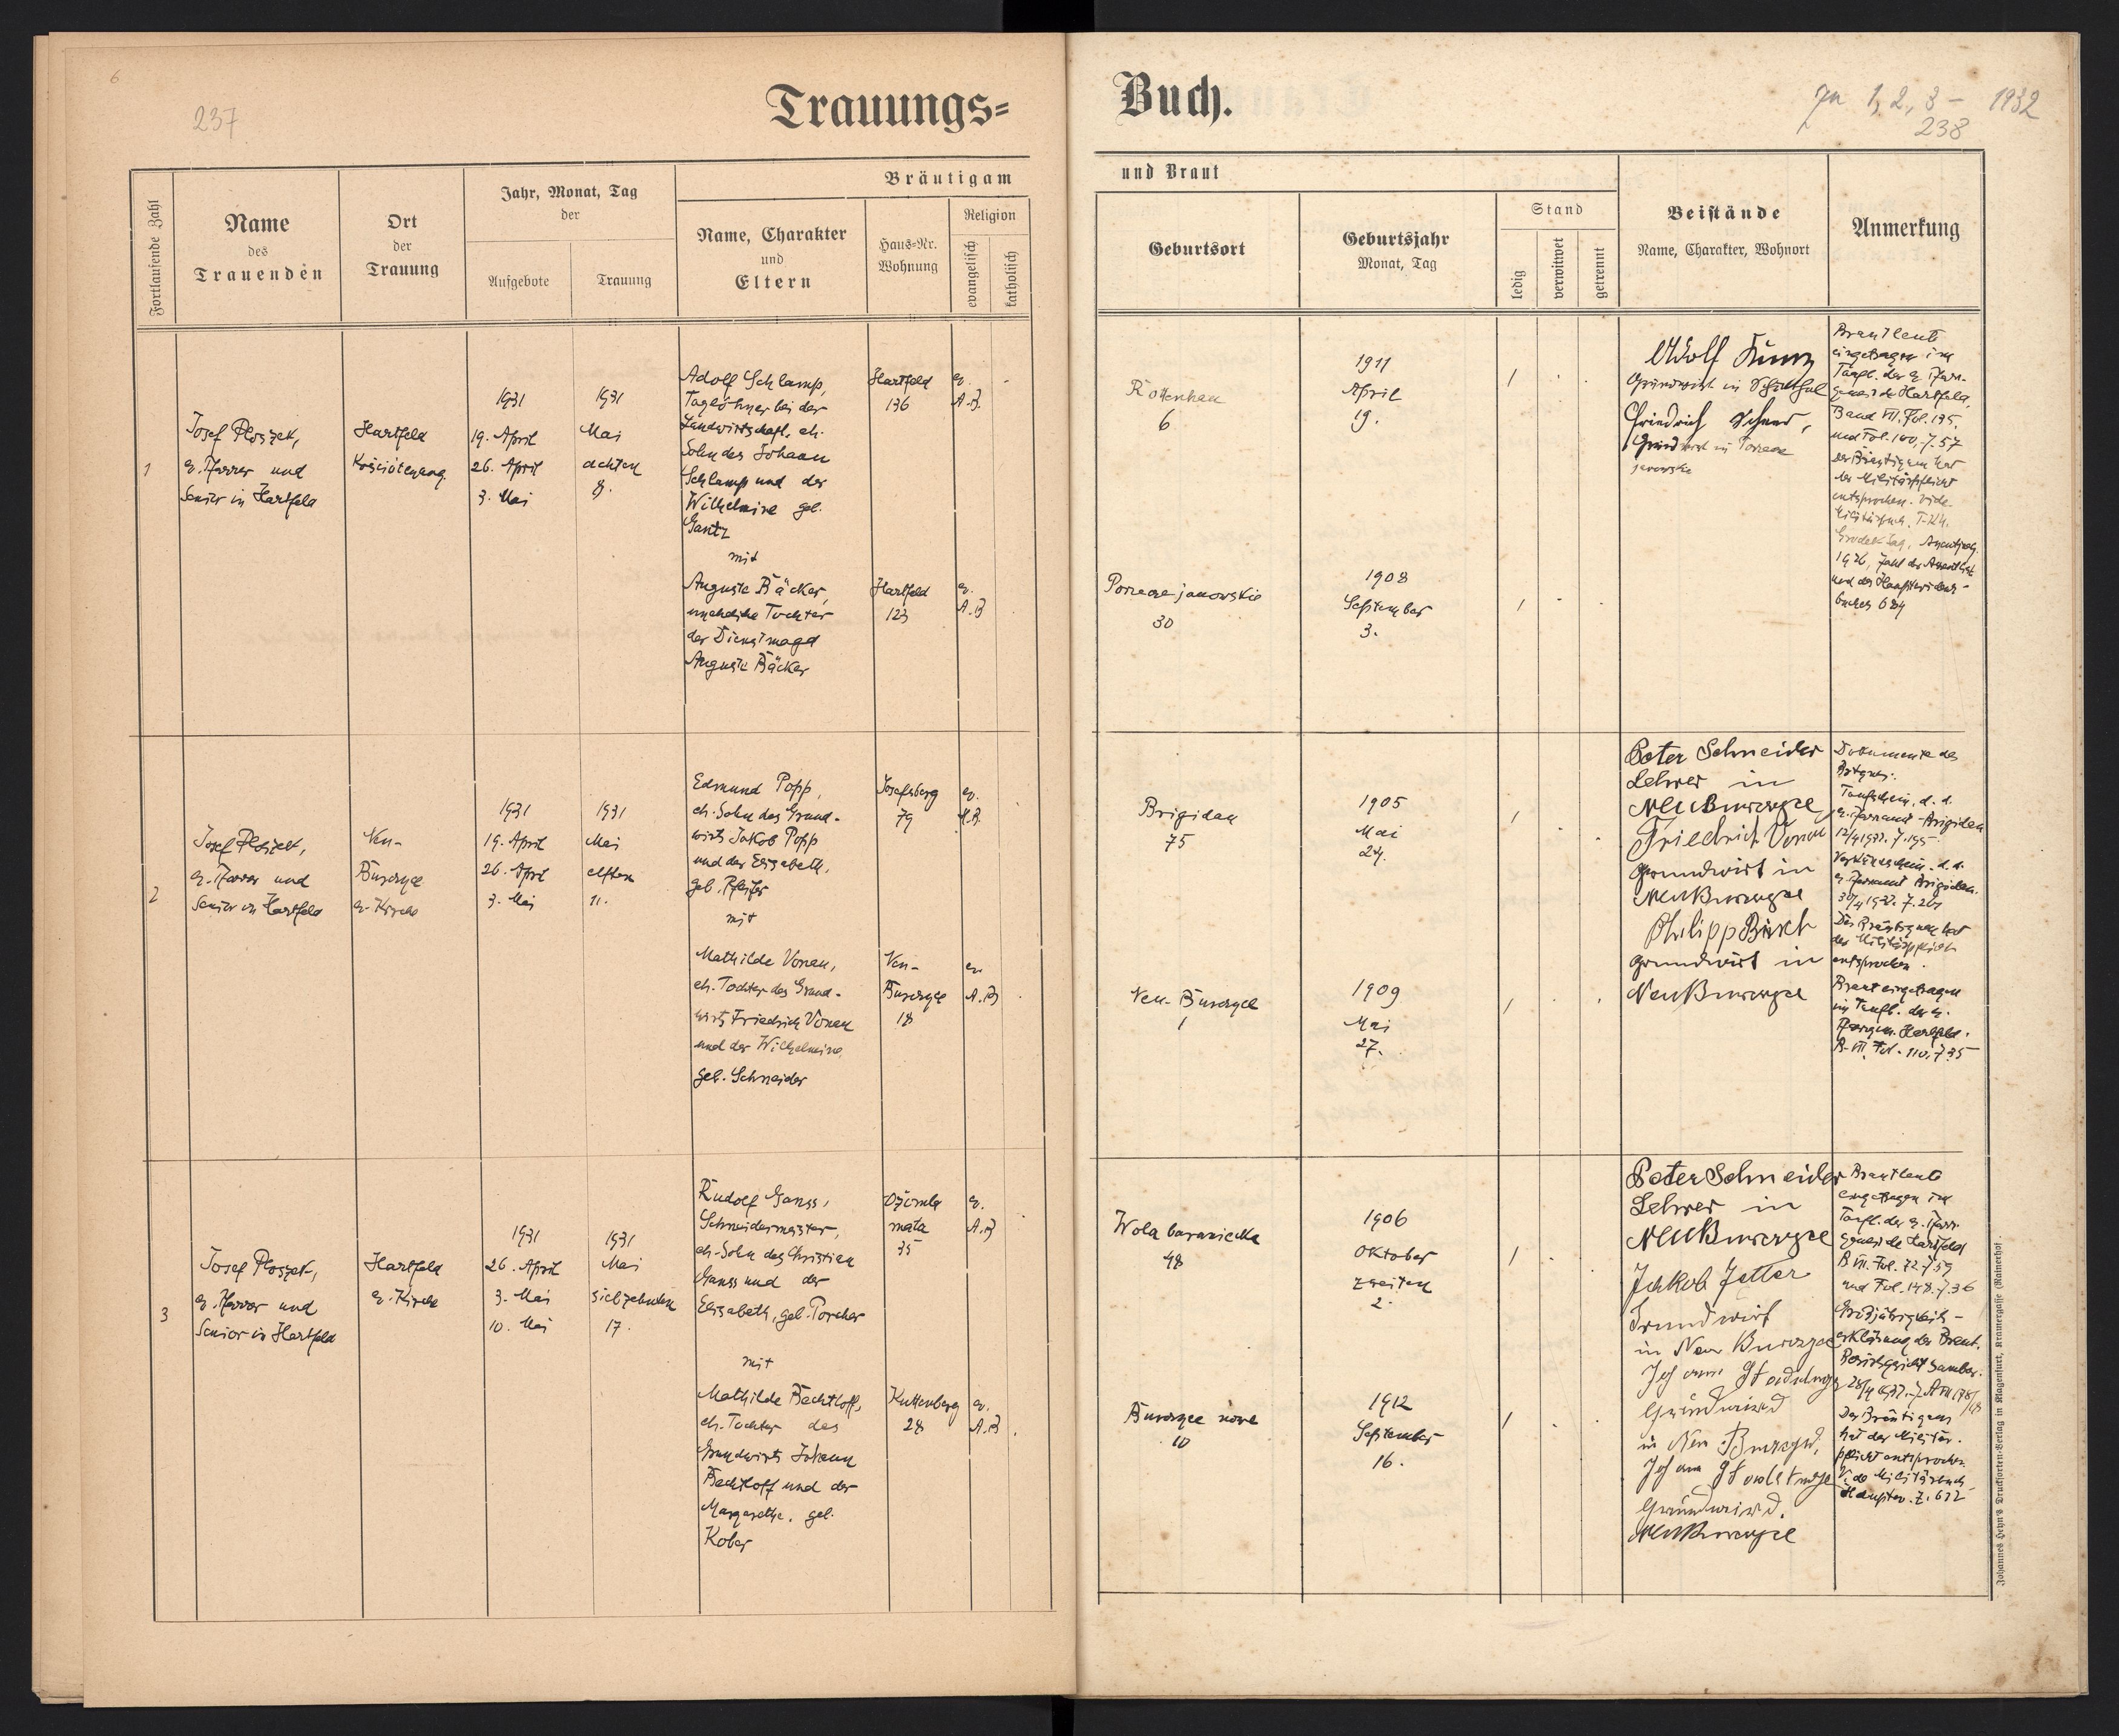 6
237
Trauungs=
Buch.
1, 2, 3 – 1932
238
Fortlaufende Zahl
Name
des
Trauenden
Ort
der
Trauung
Jahr, Monat, Tag
der
Aufgebote
Trauung
Bräutigam
Name, Charakter
und
Eltern
Haus=Nr.
Wohnung
Religion
evangelisch
katholisch
und Braut
Geburtsort
Geburtsjahr
Monat, Tag
Stand
ledig
verwitwet
getrennt
Beistände
Name, Charakter, Wohnort
Anmerkung
1
Josef Ploszek,
ev. Pfarrer und
Senior in Hartfeld
Hartfeld
1931
19. April
26. April
3. Mai
1931
Mai
achten
8.
Adolf Schlamp,
Taglöhner bei der
Landwirtschaft, eh.
Sohn des Johann
Schlamp und der
Wilhelmine geb.
Gantz
mit
Auguste Bäcker,
uneheliche Tochter
der Dienstmagd
Auguste Bäcker
Hartfeld
136
ev.
A.B.
Hartfeld
123
ev.
A.B
Rottenhan
6
1911
April
19.
Porzecze janowskie
30
1908
September
3.
Adolf Kunz
Grundwirt in
Friedrich
Grundwirt in
Brautleute
eingetragen im
Taufb. der ev. Pfarr-
gemeinde Hartfeld,
Band VII, Fol. 135,
und Fol. 100, Z. 57
der Bräutigam hat
der Militärpflicht
entsprochen. Vide
2
Josef Ploszek,
ev. Pfarrer und
Senior in Hartfeld
Neu-
Burczyce
ev. Kirche
1931
19. April
26. April
3. Mai
1931
Mai
elften
11.
Edmund Popp,
eh. Sohn des Grund-
wirts Jakob Popp
und der Elisabeth,
geb. Pfeifer
mit
Mathilde Vonau,
eh. Tochter des Grund-
wirts Friedrich Vonau
und der Wilhelmine,
geb. Schneider
Josefsberg
79
ev.
A.B.
Neu-
Burczyce
18
ev.
A.B
Brigidau
75
1905
Mai
24.
Neu-Burczyce
1
1909
Mai
27.
Peter Schneider
Lehrer in
Neu Burczyce
Friedrich Vonau
Grundwirt in
Neu Burczyce
Philipp
Grundwirt in
Neu Burczyce
Dokumente des
Taufschein, d. d.
ev. Pfarramt Brigidau
ev. Pfarramt Brigidau
Der Bräutigam hat
der Militärpflicht
entsprochen.
Braut eingetragen
im Taufb. der ev.
Pfargem. Hartfeld.
B. VII. Fol. 110, Z 35
3
Josef Ploszek,
ev. Pfarrer und
Senior in Hartfeld
Hartfeld
ev. Kirche
1931
26. April
3. Mai
10. Mai
1931
Mai
siebzehnten
17.
Rudolf Ganss,
Schneidermeister,
eh. Sohn des Christian
Ganss und der
Elisabeth, geb. Porcher
mit
Mathilde Bechtloff,
eh. Tochter des
Grundwirts Johann
Bechtloff und der
Margarethe, geb.
Kober
35
ev.
A.B
Kuttenberg
28
ev.
A.B
Wola baraniecka
48
1906
Oktober
zweiten
2.
Burczyce nowe
10
1912
September
16.
Peter Schneider
Lehrer in
Neu Burczyce
Jakob
Grundwirt
in Neu Burczyce
in Neu
Neu Burczyce
Brautleute
eingetragen im
Taufb. der ev. Pfarr-
gemeinde Hartfeld
B. VII. Fol. 72 Z 59
und Fol. 148. Z. 36
Großjährigkeits-
erklärung der Braut,
Bezirksgericht Sambor
Der Bräutigam
hat der Militär-
pflicht entsprochen
Johannes Heyn's Drucksorten-Verlag in Klagenfurt, Kramergasse (Rainerhof).